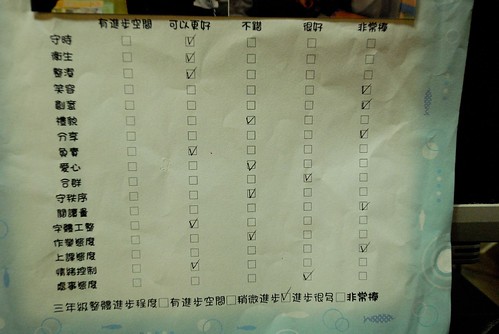 有進步空間 可以更好 不錯 很好 非常棒
守時 □ ☑ □ □ □
衛生 □ ☑ □ □ □
整潔 □ ☑ □ □ □
笑容 □ □ □ □ ☑
創意 □ □ □ □ ☑
禮貌 □ □ ☑ □ □
分享 □ □ □ □ ☑
負責 □ ☑ □ □ □
愛心 □ □ ☑ □ □
合群 □ □ □ ☑ □
守秩序 □ □ ☑ □ □
閱讀量 □ □ □ □ ☑
字體工整 □ ☑ □ □ □
作業態度 □ □ ☑ □ □
上課態度 □ □ □ □ ☑
情緒控制 □ ☑ □ □ □
處事態度 □ □ □ ☑ □
三年級整體進步程度□有進步空間□稍微進步☑進步很多□非常棒